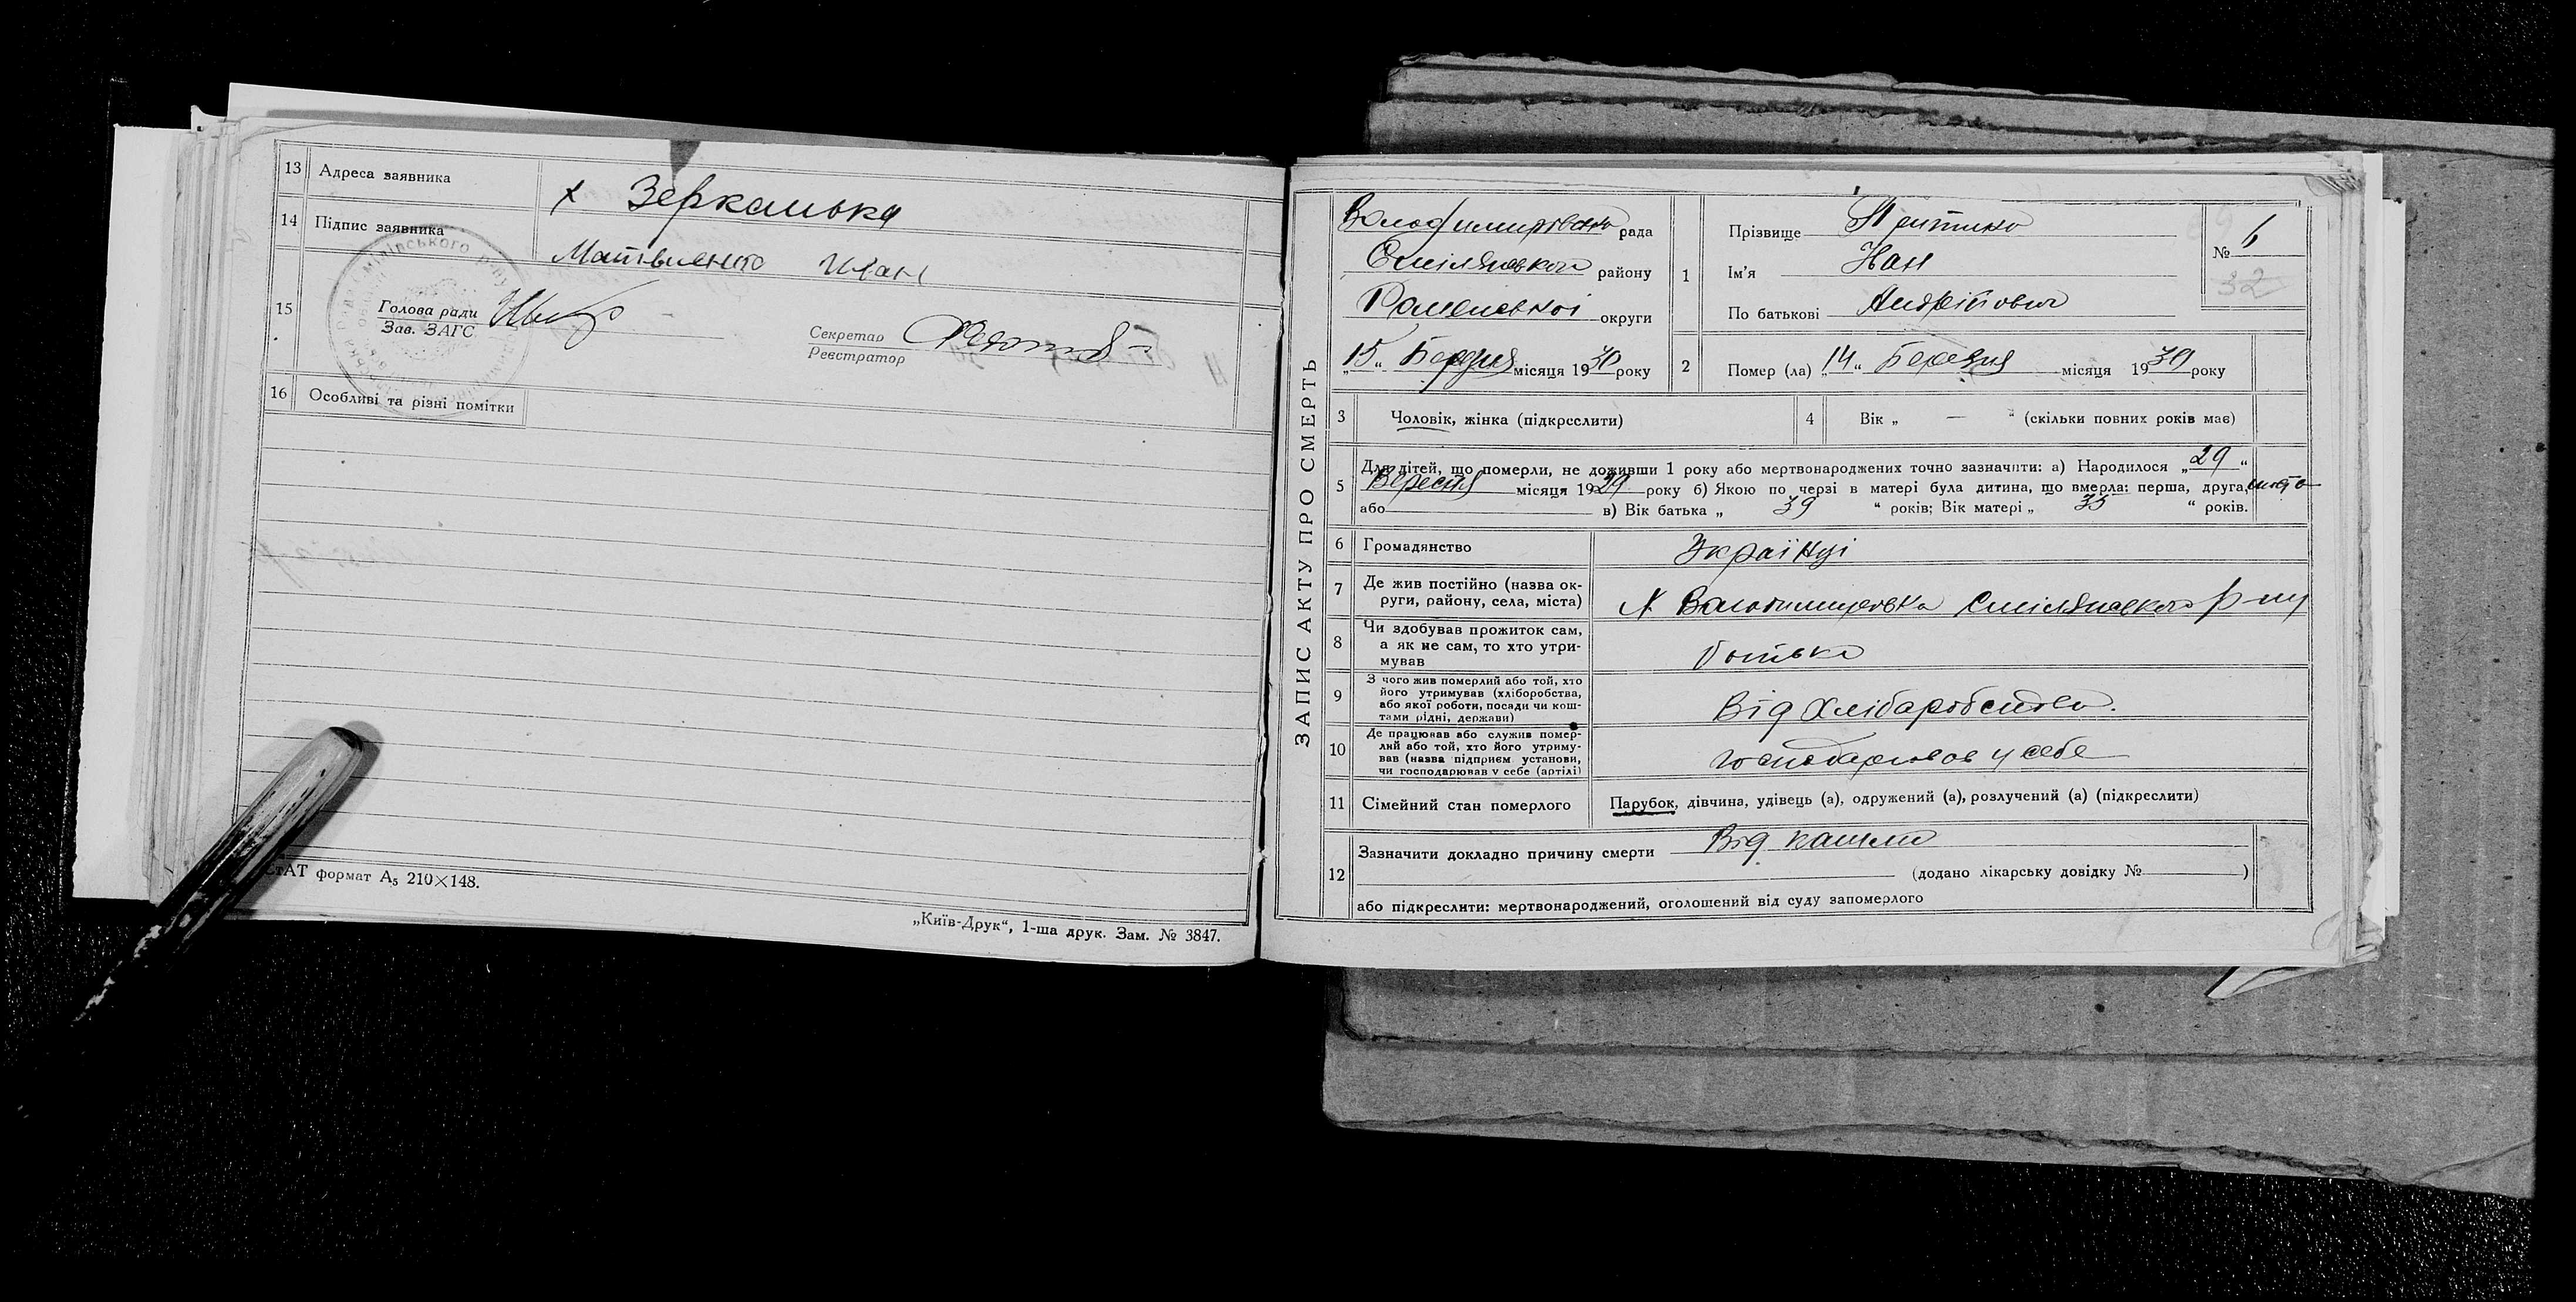 13 Адреса заявника х Зеркалька
14 Підпис заявника Матвиенко Иван
15 Голова ради
Зав. ЗАГС
Секретар
Реєстратор
16 Особливі та різні помітки
СтАТ формат А5 210×148.
„Київ-Друк“, 1-ша друк. Зам. № 3847.
ЗАПИС АКТУ ПРО СМЕРТЬ
Володимирівська рада
Смілянського району
Роменської округи
„15“ Березня місяця 1930 року
1 Прізвище
Ім'я Иван
По батькові Андрійович
№ 6
32
2 Помер (ла) „14“ Березня місяця 1930 року
3 Чоловік, жінка (підкреслити)
4 Вік „ — “ (скільки повних років має)
5 Для дітей, що померли, не доживши 1 року або мертвонароджених точно зазначити: а) Народилося „29“
Вересня місяця 1929 року б) Якою по черзі в матері була дитина, що вмерла: перша, друга, шоста
або в) Вік батька „ 39 “ років; Вік матері „ 35 “ років.
6 Громадянство Українці
7 Де жив постійно (назва ок-
руги, району, села, міста) х Володимировка Смілянського р-ну
8 Чи здобував прожиток сам,
а як не сам, то хто утри-
мував батько
9 З чого жив померлий або той, хто
його утримував (хліборобства,
або якої роботи, посади чи кош-
тами рідні, держави) Від хлібаробства.
10 Де працював або служив помер-
лий або той, хто його утриму-
вав (назва підприєм установи,
чи господарював у себе (артілі) господарював у себе
11 Сімейний стан померлого Парубок, дівчина, удівець (а), одружений (а), розлучений (а) (підкреслити)
12 Зазначити докладно причину смерти Від кашлю
(додано лікарську довідку № )
або підкреслити: мертвонароджений, оголошений від суду запомерлого